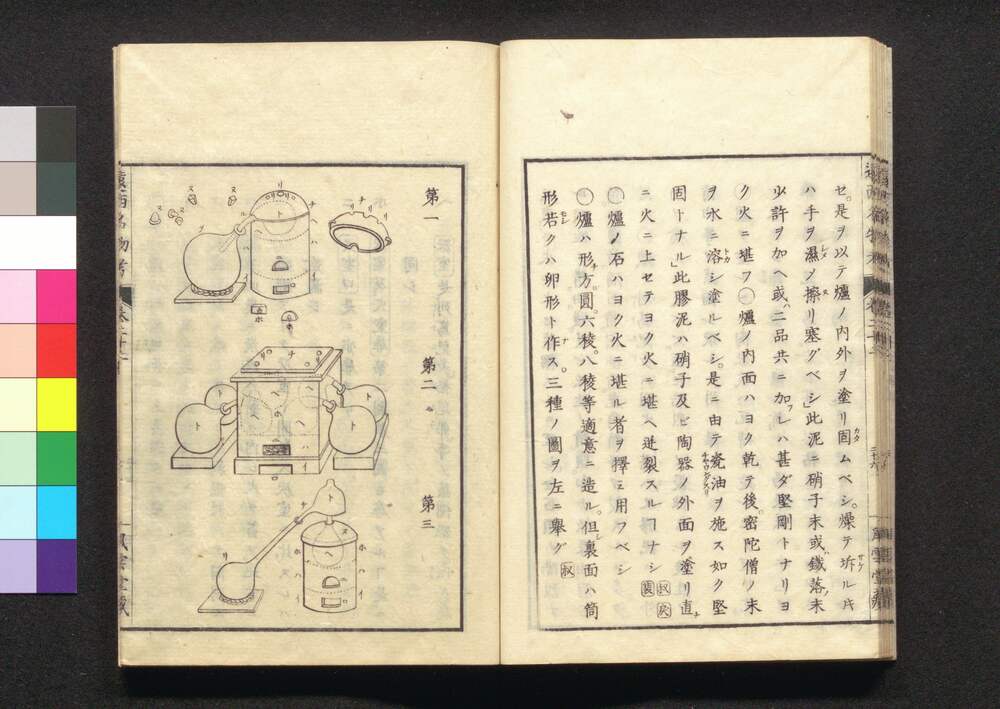 セ。是ヲ以テ爐ノ内外ヲ塗リ固ムベシ。燥テ坼ル片
ハ手ヲ濕ノ擦リ塞グベシ」此泥ニ硝子末或鐵落末
少許ヲ加ヘ或ハ二品共ニ加フレハ甚ダ堅剛トナリヨ
ク火ニ堪フ○爐ノ内面ハヨク乾テ後。密陀僧ノ末
ヲ水ニ溶シ塗ルベシ。是ニ由テ瓷油ヲ施ス如ク堅
固トナル」此膠泥ハ硝子及ビ陶器ノ外面ヲ塗リ直
ニ火ニ上セテヨク火ニ堪ヘ迸裂スルヿナシ
○爐ノ石ハヨク火ニ堪ル者ヲ擇ミ用フベシ
○爐ハ形方。圓。六稜。八稜等適意ニ造ル。但裏面ハ筒
形若クハ卵形ト作ス。三種ノ圖ヲ左ニ舉グ
第一
第二
第三
遠西名物考